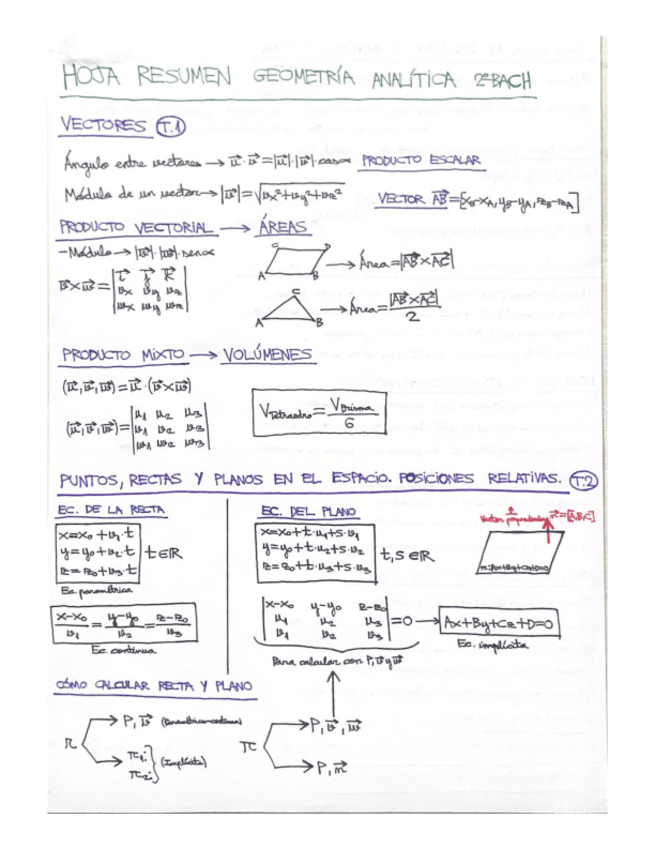 HOJA RESUMEN GEOMETRÍA ANALÍTICA 2ºBACH
VECTORES T.1
Ángulo entre vectores → u⃗ · v⃗ = |u⃗|·|v⃗|·cosα PRODUCTO ESCALAR
Módulo de un vector → |v⃗| = √(vx²+vy²+vz²)
VECTOR AB⃗ = [xB-xA, yB-yA, zB-zA]
PRODUCTO VECTORIAL → ÁREAS
- Módulo → |v⃗|·|w⃗|·senα
v⃗ × w⃗ = | i⃗ j⃗ k⃗ |
| vx vy vz |
| wx wy wz |
A B C D → Área = |AB⃗ × AC⃗|
A B C → Área = |AB⃗ × AC⃗| / 2
PRODUCTO MIXTO → VOLÚMENES
(u⃗, v⃗, w⃗) = u⃗ · (v⃗ × w⃗)
(u⃗, v⃗, w⃗) = | u1 u2 u3 |
| v1 v2 v3 |
| w1 w2 w3 |
VTetraedro = VPrisma / 6
PUNTOS, RECTAS Y PLANOS EN EL ESPACIO. POSICIONES RELATIVAS. T.2
EC. DE LA RECTA
x = x0 + v1·t
y = y0 + v2·t t∈ℝ
z = z0 + v3·t
Ec. paramétrica
(x-x0)/v1 = (y-y0)/v2 = (z-z0)/v3
Ec. continua
EC. DEL PLANO
x = x0 + t·u1 + s·v1
y = y0 + t·u2 + s·v2 t, s ∈ℝ
z = z0 + t·u3 + s·v3
Vector perpendicular n⃗ = [A,B,C]
π: Ax+By+Cz+D=0
| x-x0 y-y0 z-z0 |
| u1 u2 u3 | = 0 → Ax+By+Cz+D=0
| v1 v2 v3 |
Ec. implícita
Para calcular con P, v⃗ y w⃗
CÓMO CALCULAR RECTA Y PLANO
r → P, v⃗ (Paramétrica-continua)
→ π1: π2: (Implícita)
π → P, v⃗, w⃗
→ P, n⃗